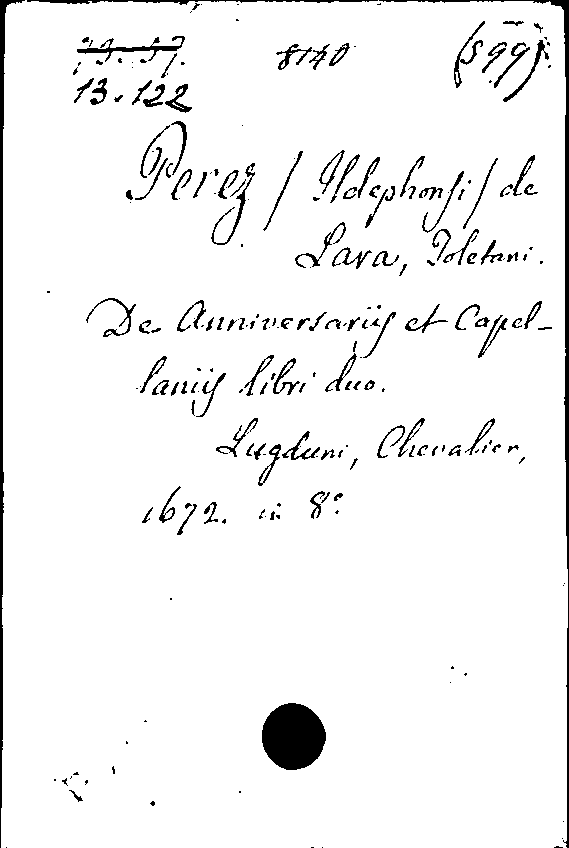 73.57. 8140 (599).
13.122
Perez / Ildephonsi / de
Lara, Toletani.
De Anniversariis et Capel-
laniis libri duo.
Lugduni, Chevalier,
1672. in 8°.